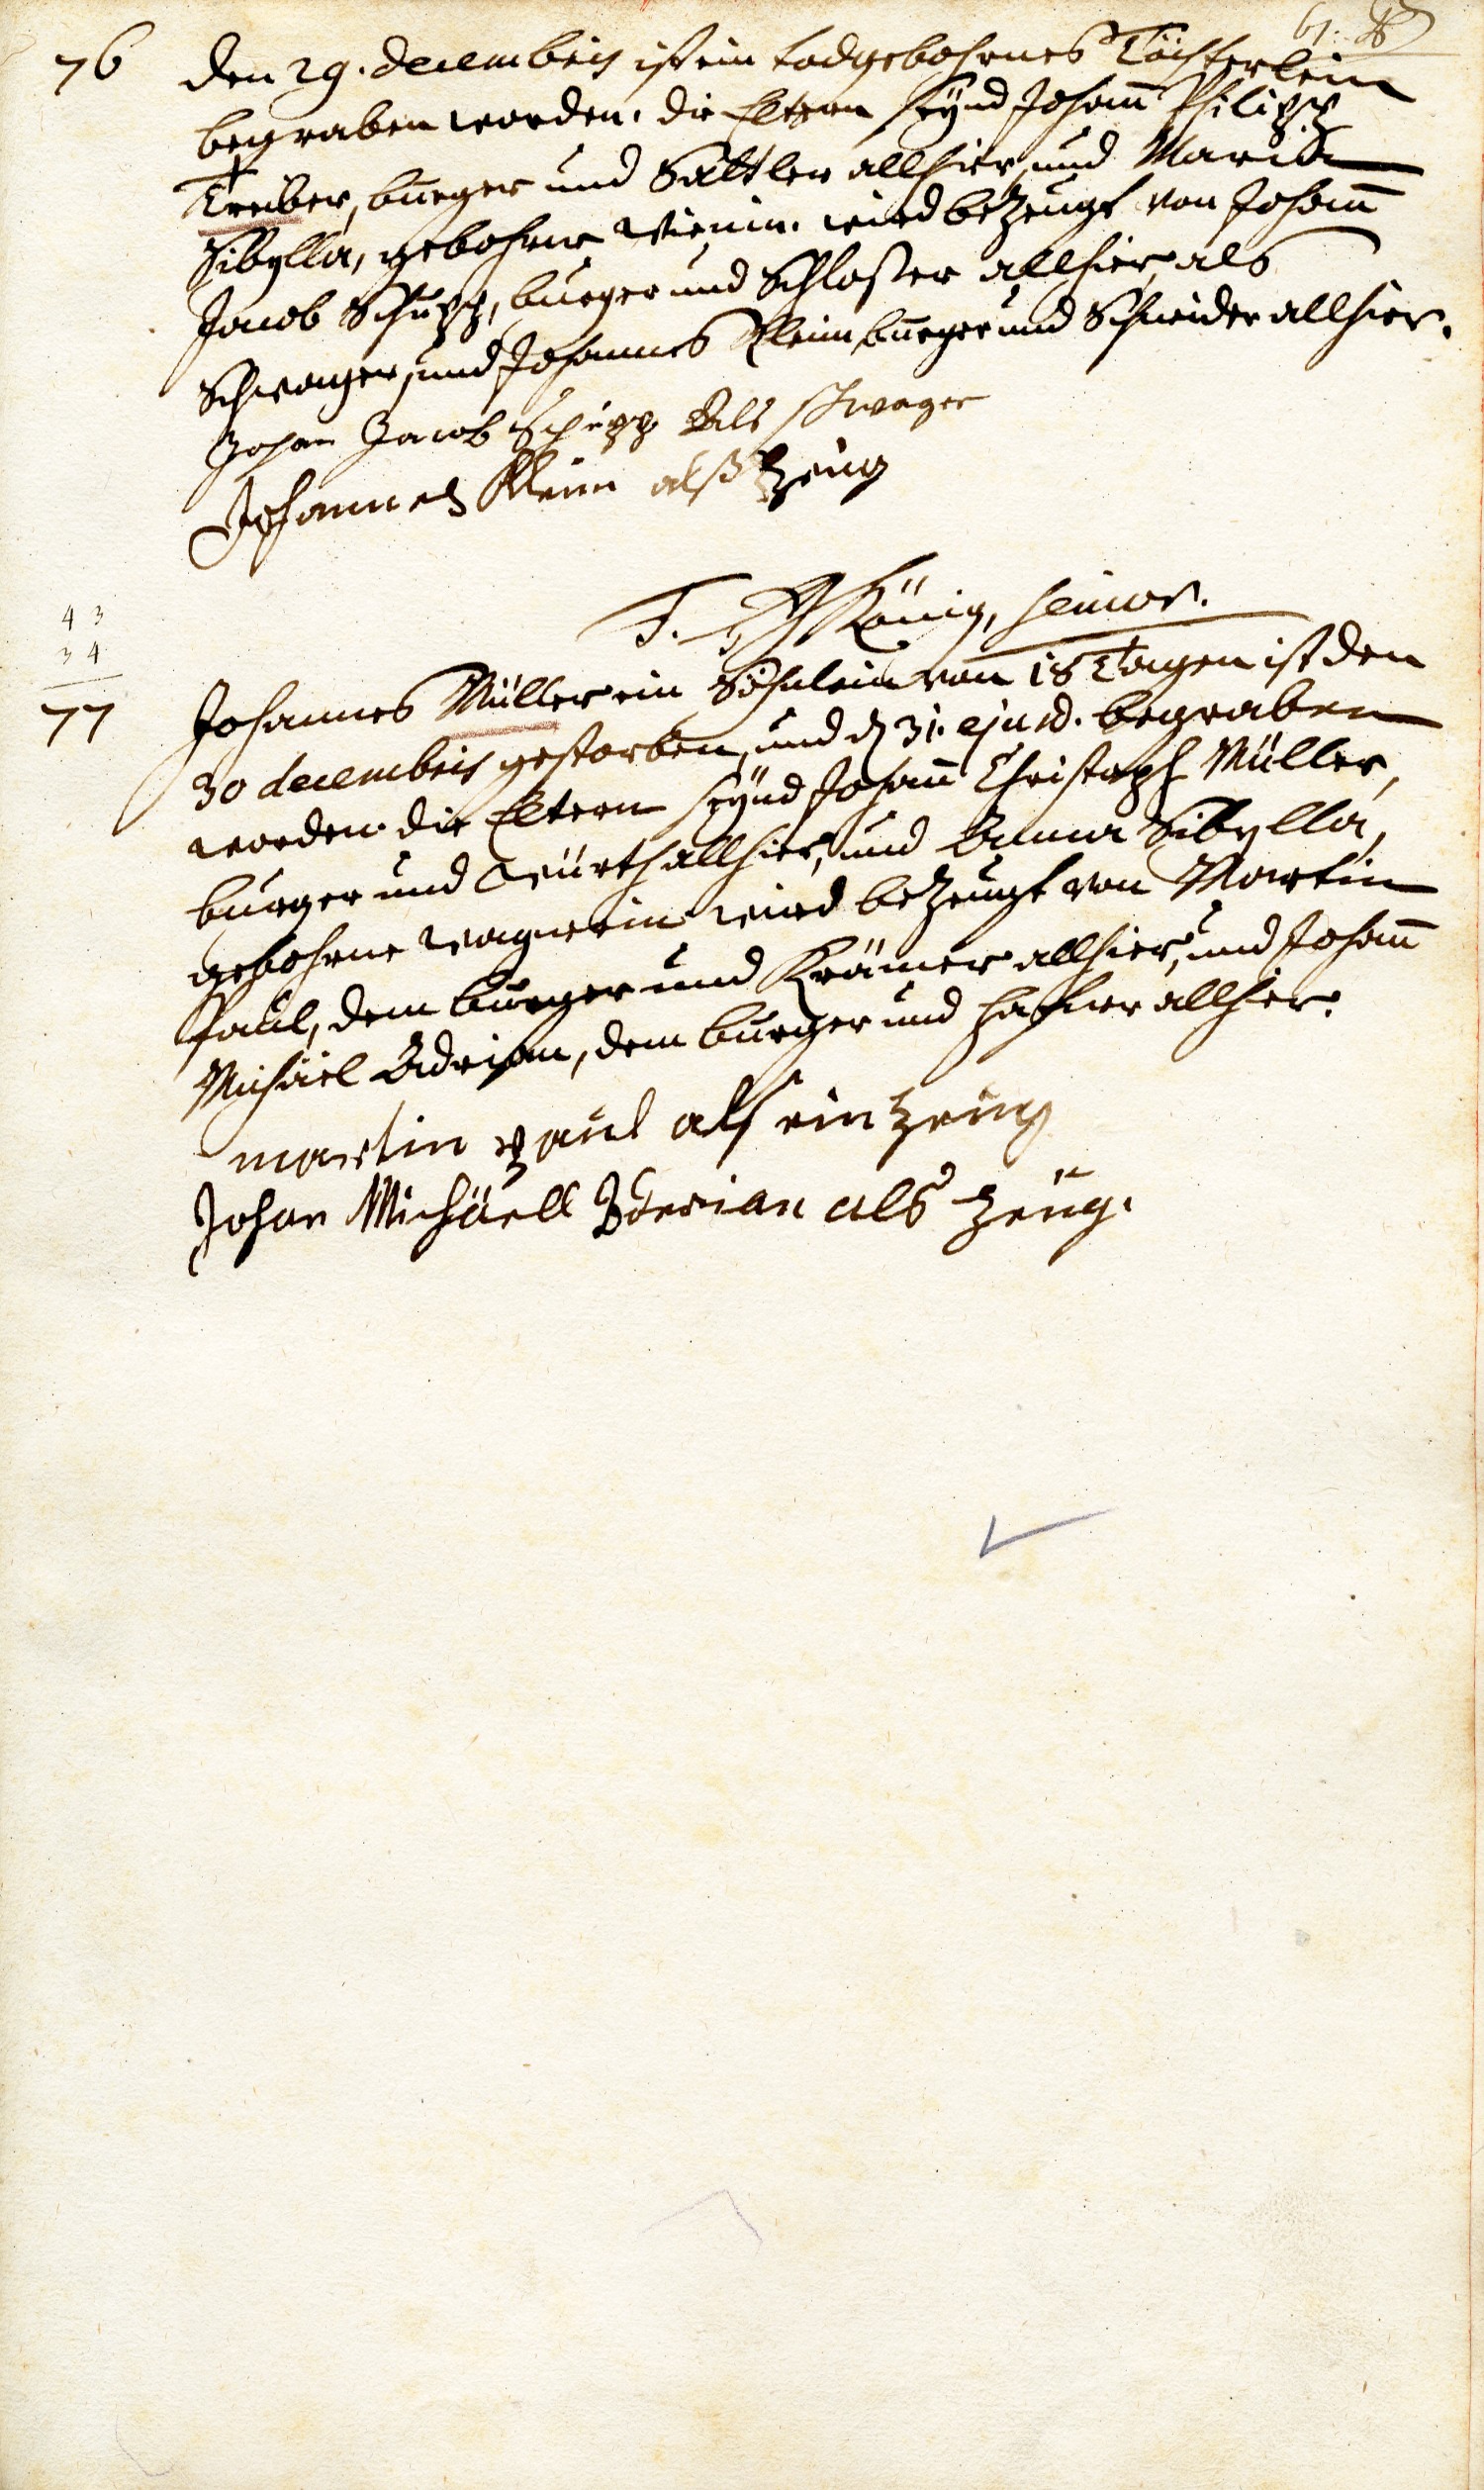 76 den 29. decembris ist ein todgebohrnes Töchterlein
begraben worden. die Eltern seynd Johann Philipp
Treiber, burger und Sattler allhier, und Maria
Sibylla, gebohrne wird bezeugt von Johann
Jacob Schupp, burger und Schlosser allhier, als
Schwager, und Johannes Klein, burger und Schneider allhier.
Johan Jacob Schupp Als schwager
Johannes Klein alß Zeug
König, senior.
43
34
77 Johannes Müller ein Söhnlein von 18 Tagen ist den
30 decembris gestorben, und d 31. ejusd. begraben
worden. die Eltern seynd Johann Christoph Müller,
burger und Würth allhier, und Anna Sibylla,
gebohrne Wagnerin. wird bezeugt von Martin
Paul, dem burger und Krämer allhier, und Johann
Michäel Adrian, dem burger und Hafner allhier.
martin paul als ein zeug
Johan Michäell Adrian als Zeüg.